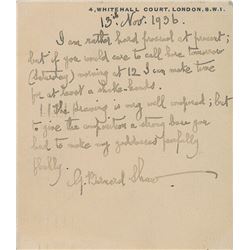 4, WHITEHALL COURT, LONDON, S.W.1.
13th Nov. 1936.
I am rather hard pressed at present;
but if you would care to call here tomorrow
(Saturday) morning at 12 I can make time
for at least a shake-hands.
The drawing is very well composed; but
to give the composition a strong base you
had to make my goddesses painfully
G. Bernard Shaw